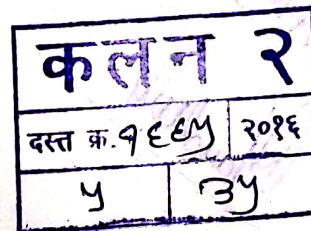 कलन २
दस्त क्र. १६६५ २०१६
५ ३५